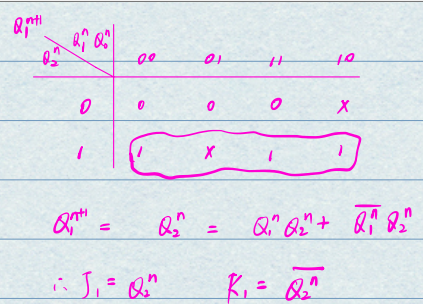 Q₁ⁿ⁺¹
Q₂ⁿ Q₁ⁿ Q₀ⁿ 00 01 11 10
0 0 0 0 x
1 1 x 1 1
Q₁ⁿ⁺¹ = Q₂ⁿ = Q₁ⁿ Q₂ⁿ + \overline{Q₁ⁿ} Q₂ⁿ
∴ J₁ = Q₂ⁿ K₁ = \overline{Q₂ⁿ}